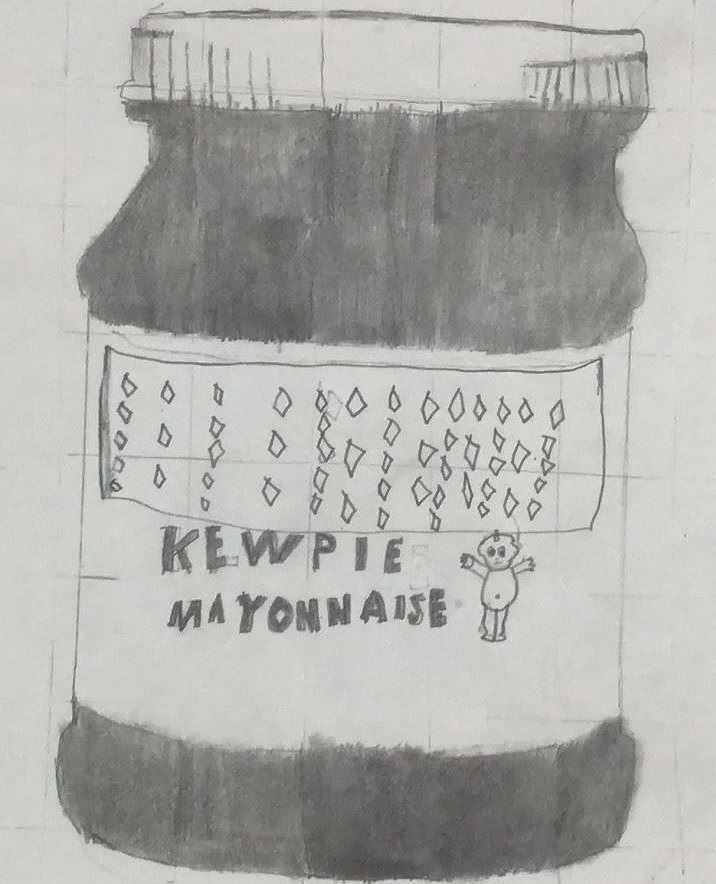 KEWPIE
MAYONNAISE